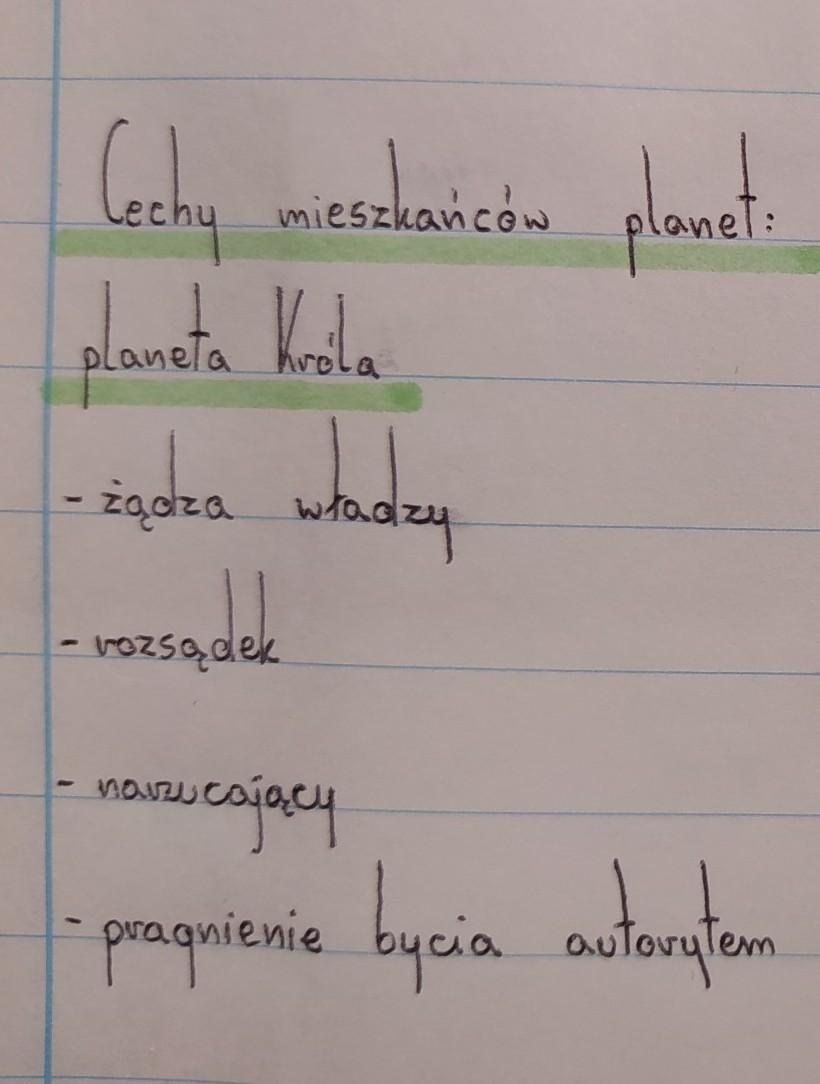 Cechy mieszkańców planet:
planeta Króla
- żądza władzy
- rozsądek
- narzucający
- pragnienie bycia autorytem